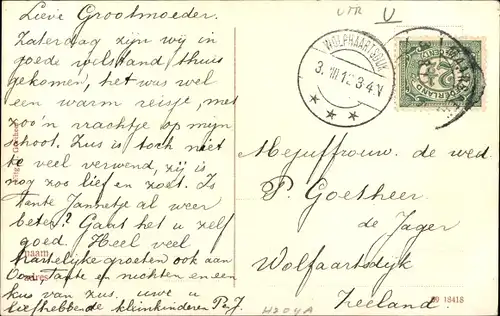 Lieve Grootmoeder.
Zaterdag zijn wij in
goede welstand thuis
gekomen, het was wel
een warm reisje, met
zoo'n vrachtje op mijn
schoot. Zus is toch niet
te veel verwend, zij is
nog zoo lief en zoet. Is
Tante Jannetje al weer
beter? Gaat het u zelf
goed. Heel veel
hartelijke groeten ook aan
Oom Tante en nichten en een
kus van zus. uwe u
liefhebbende kleinkinderen P en J.
naam
adres
UTR
U
WOLPHAARTSDIJK
3. VIII 1 3-4.V
NEDERLAND
2½
Mejuffrouw. de wed.
P. Goetheer
de Jager
Wolfaartsdyk
Zeeland.
09 18418
H204A